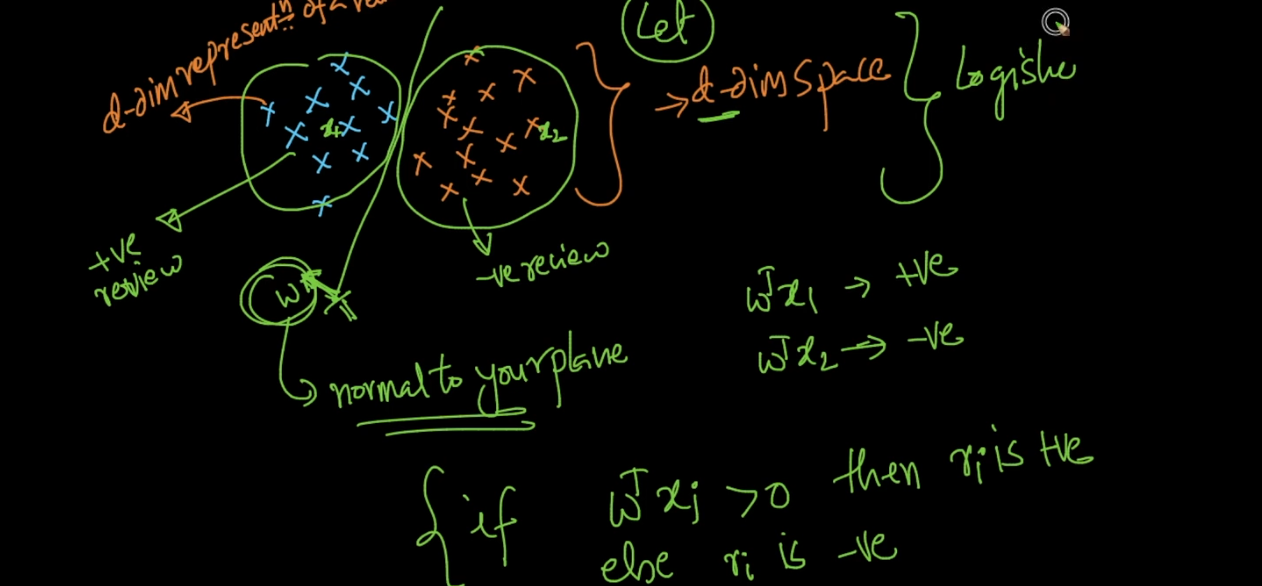 d-dim representⁿ of a
Let
→ d-dim space
Logistic
x₁
x₂
+ve
review
-ve review
w
normal to your plane
wᵀx₁ → +ve
wᵀx₂ → -ve
if wᵀxᵢ > 0 then rᵢ is +ve
else rᵢ is -ve